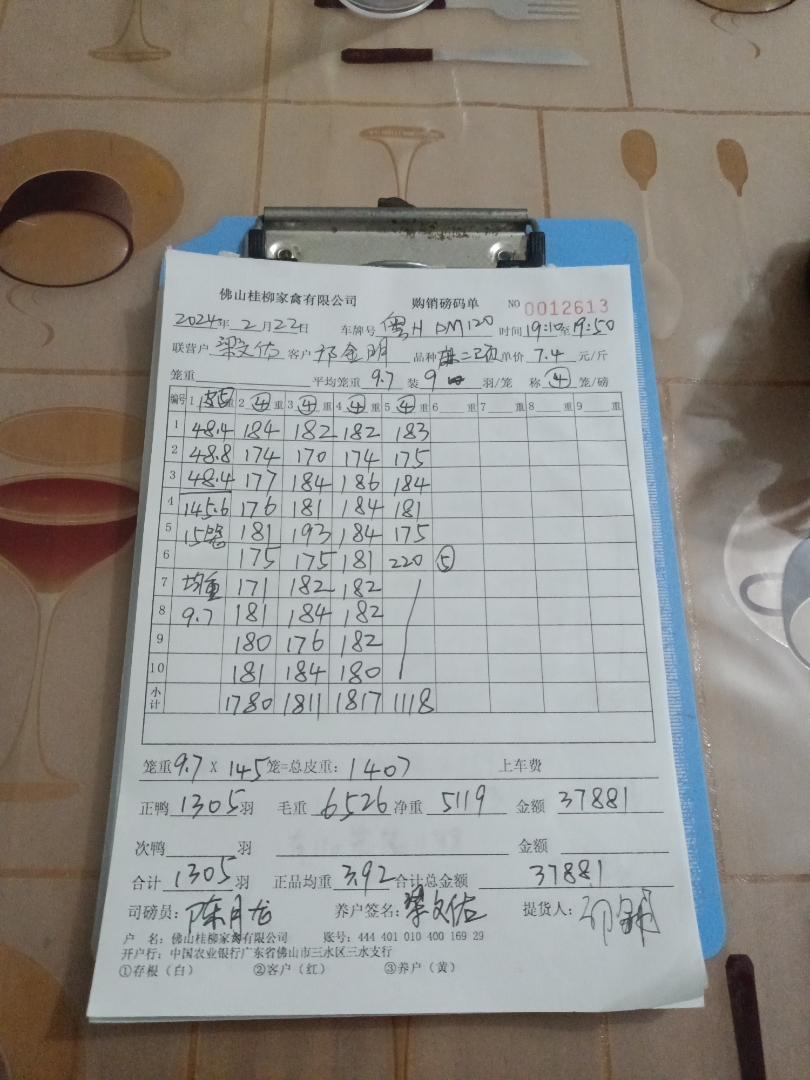 佛山桂柳家禽有限公司 购销磅码单 NO 0012613
2024年 2月22日 车牌号 粤H DM120 时间 19:10至19:50
联营户 梁文佑 客户 品种 单价 7.4 元/斤
笼重 平均笼重 9.7 装 9 羽/笼 称 ④ 笼/磅
编号 1 重 2 ④ 重 3 ④ 重 4 ④ 重 5 ④ 重 6 重 7 重 8 重 9 重
1 48.4 184 182 182 183
2 48.8 174 170 174 175
3 48.4 177 184 186 184
4 145.6 176 181 184 181
5 15笼 181 193 184 175
6 175 175 181 220 ⑤
7 均重 171 182 182
8 9.7 181 184 182
9 180 176 182
10 181 184 180
小计 1780 1811 1817 1118
笼重 9.7 X 145 笼=总皮重: 1407 上车费
正鸭 1305 羽 毛重 6526 净重 5119 金额 37881
次鸭 羽 金额
合计 1305 羽 正品均重 3.92 合计总金额 37881
司磅员: 陈月龙 养户签名: 梁文佑 提货人:
户 名: 佛山桂柳家禽有限公司 账号: 444 401 010 400 169 29
开户行: 中国农业银行广东省佛山市三水区三水支行
①存根(白) ②客户(红) ③养户(黄)